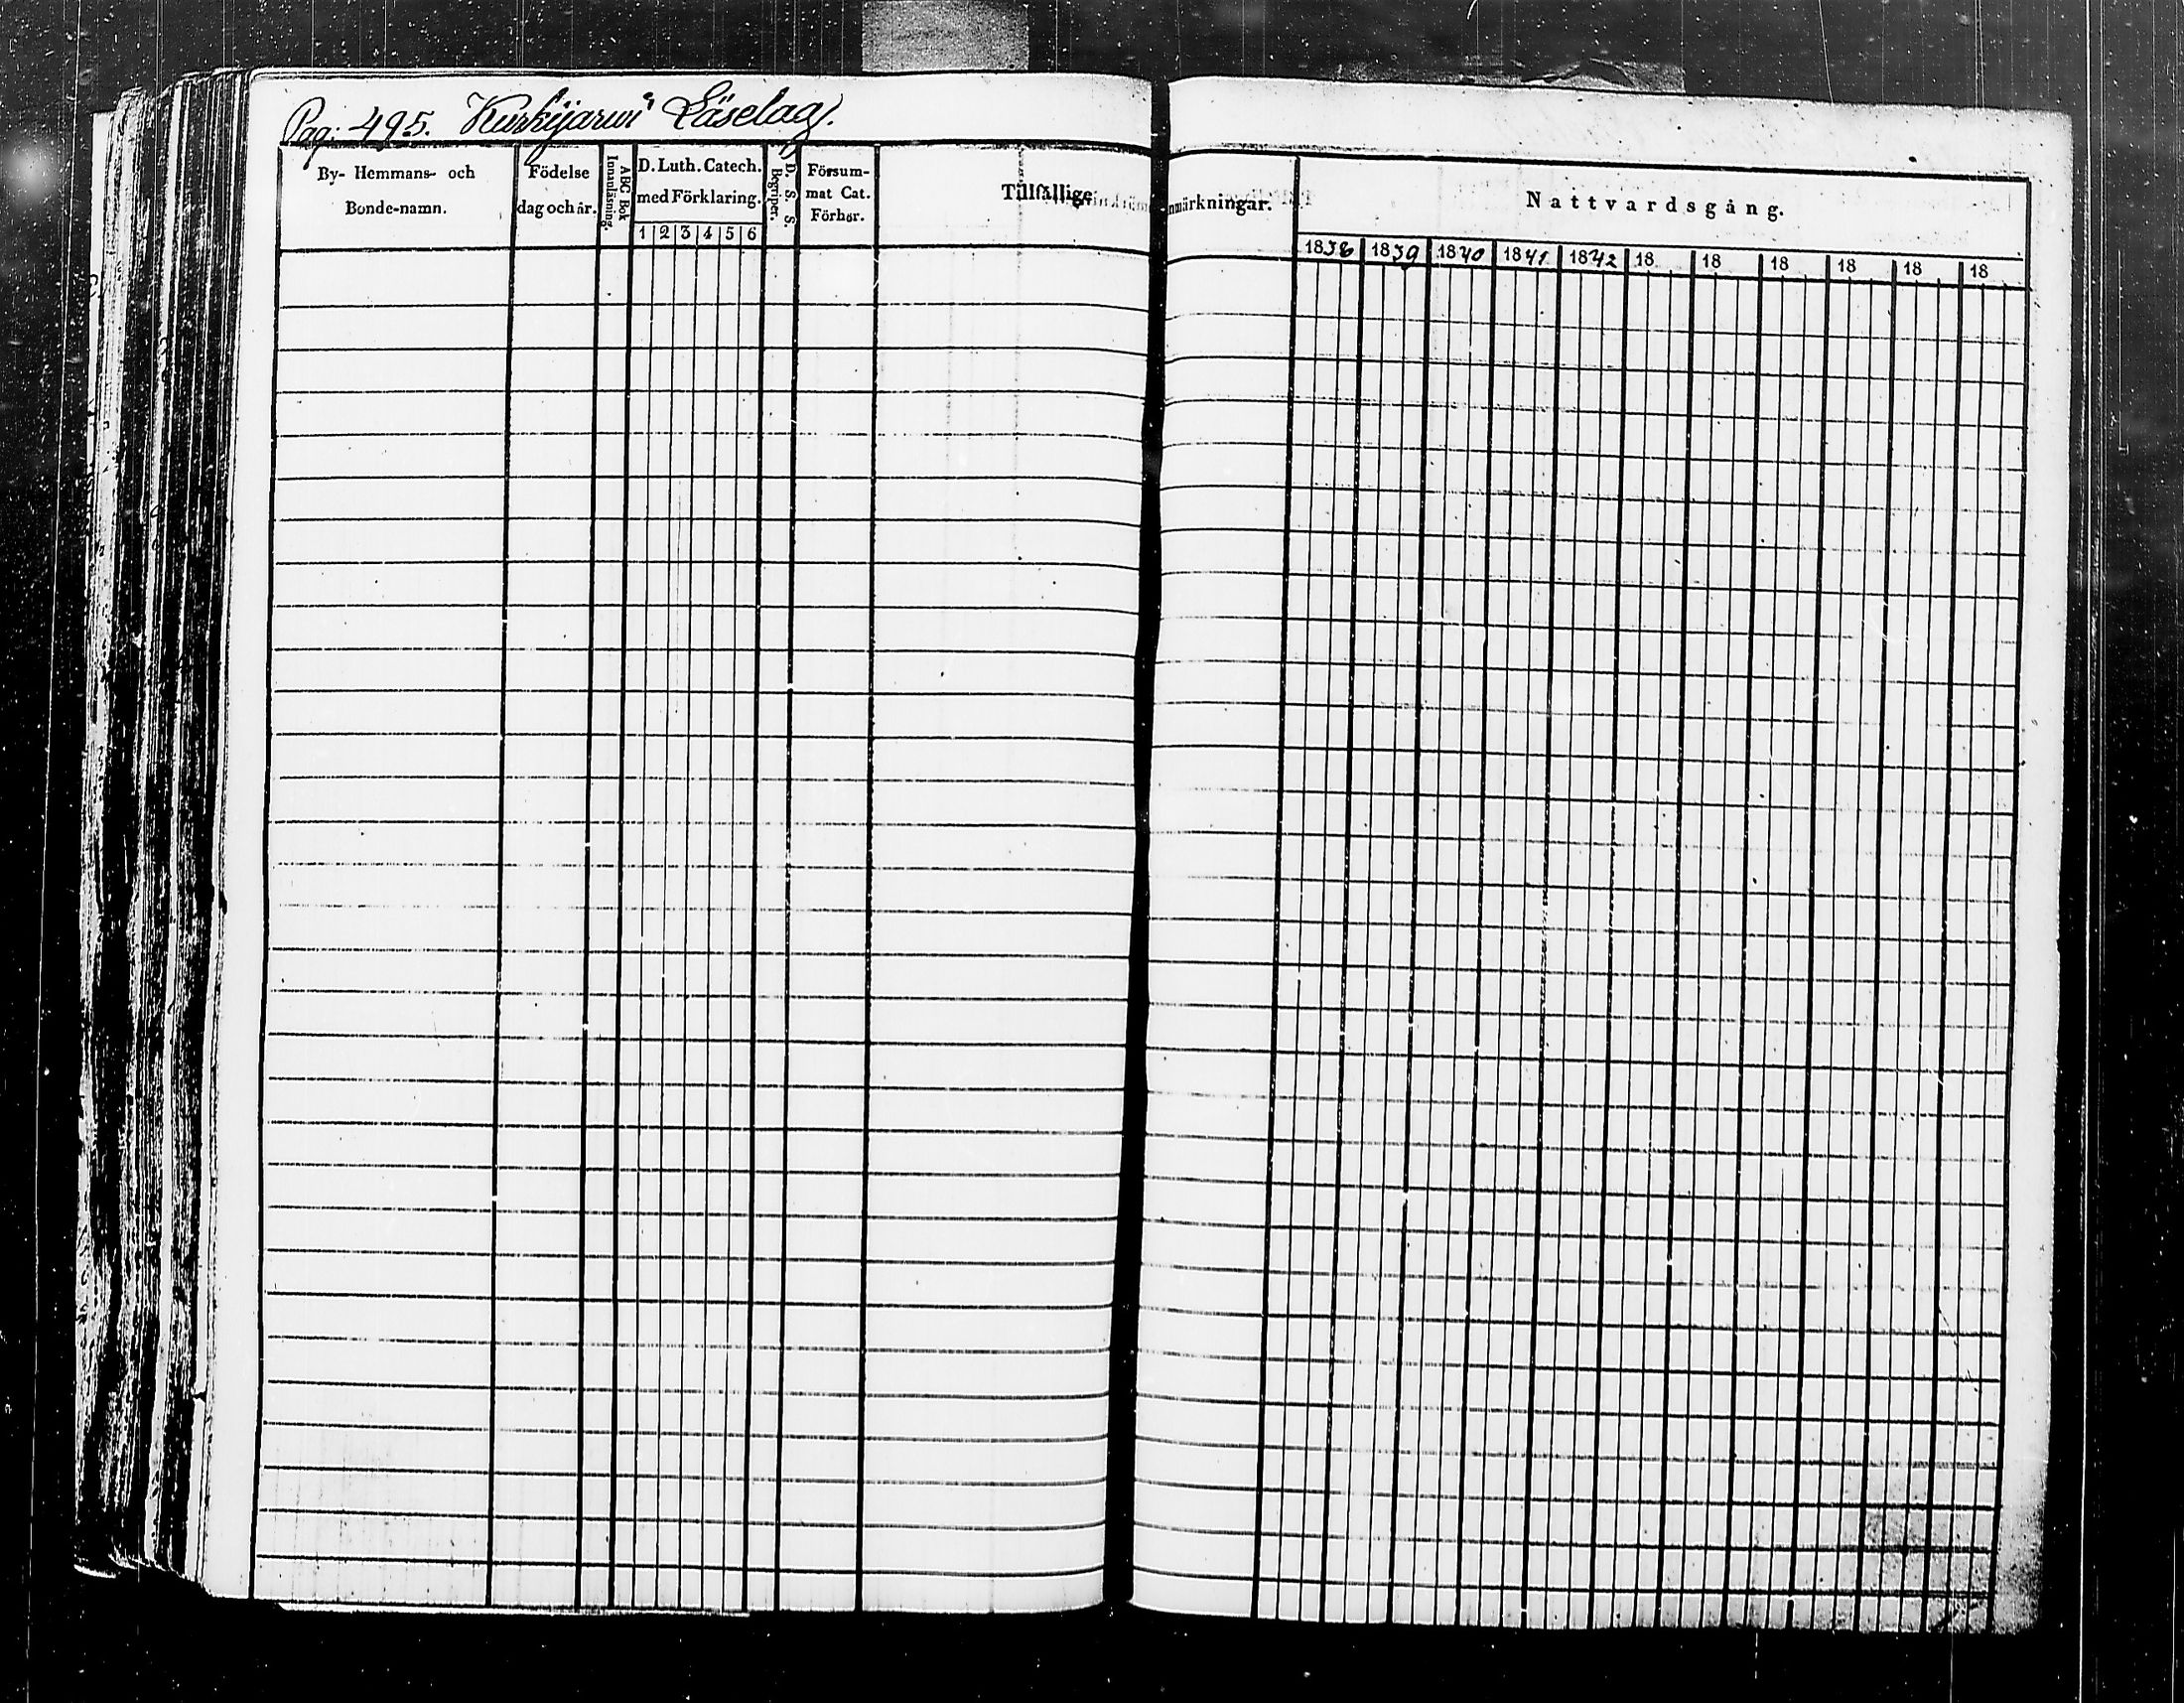 Pag: 495. Kurkijarwi Läselag.
By- Hemmans- och
Bonde-namn.
Födelse
dag och år.
ABC Bok
Innanläsning.
D. Luth. Catech.
med Förklaring.
1 2 3 4 5 6
D. S. S.
Begriper.
Försum-
mat Cat.
Förhör.
Tillfällige
nmärkningar.
Nattvardsgång.
1838 1839 1840 1841 1842 18 18 18 18 18 18